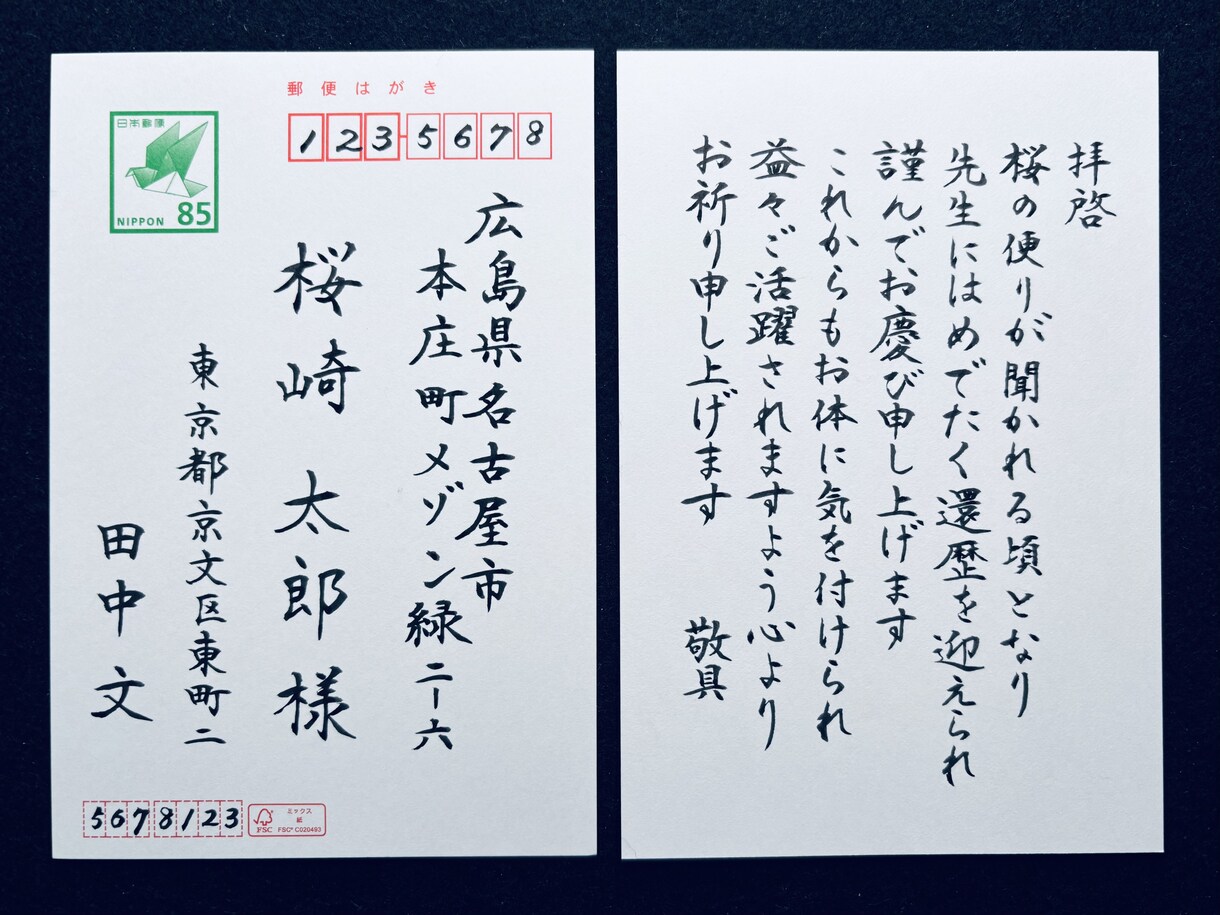 郵便はがき
日本郵便
NIPPON 85
123-5678
広島県名古屋市
本庄町メゾン緑二ー六
桜崎 太郎 様
東京都京文区東町二
田中 文
5678123
FSC
ミックス
紙
FSC® C020493
拝啓
桜の便りが聞かれる頃となり
先生にはめでたく還歴を迎えられ
謹んでお慶び申し上げます
これからもお体に気を付けられ
益々ご活躍されますよう心より
お祈り申し上げます 敬具